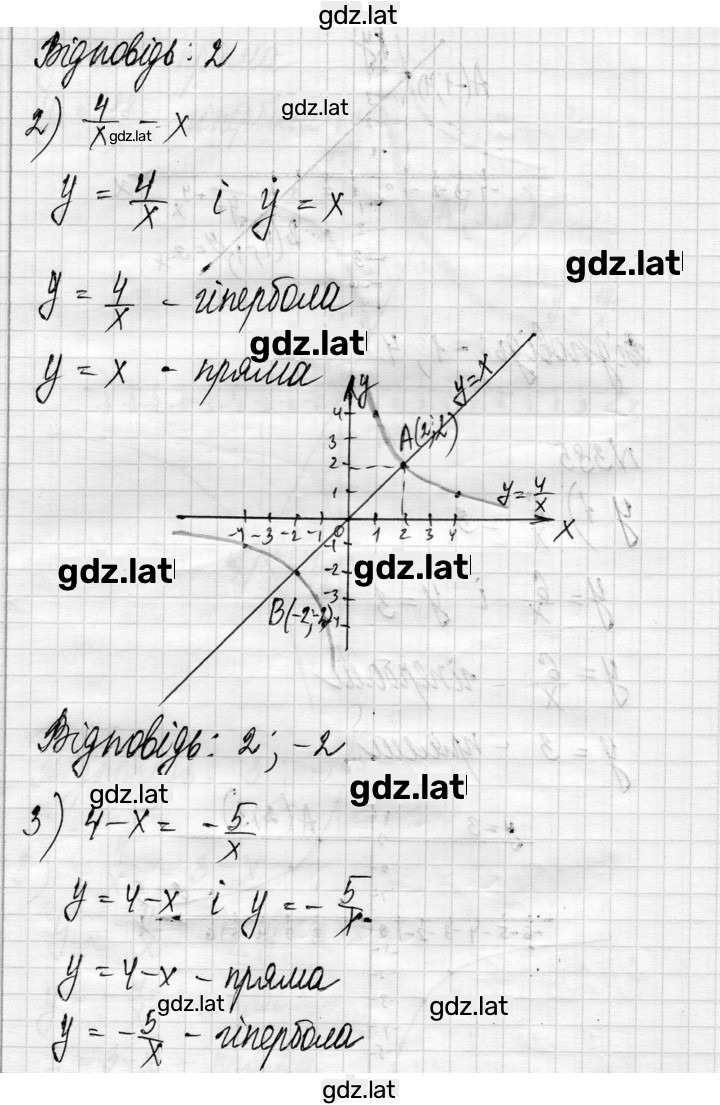 gdz.lat
Відповідь: 2
gdz.lat
2) 4/x = x
gdz.lat
y = 4/x і y = x
gdz.lat
y = 4/x - гіпербола
gdz.lat
y = x - пряма
y
y=x
4
A(2;2)
3
2
1
y=4/x
-4 -3 -2 -1 0 1 2 3 4
x
-1
gdz.lat gdz.lat
-2
-3
B(-2;-2)
-4
Відповідь: 2; -2
gdz.lat gdz.lat
3) 4-x = -5/x
y = 4-x і y = -5/x
y = 4-x - пряма
gdz.lat gdz.lat
y = -5/x - гіпербола
gdz.lat